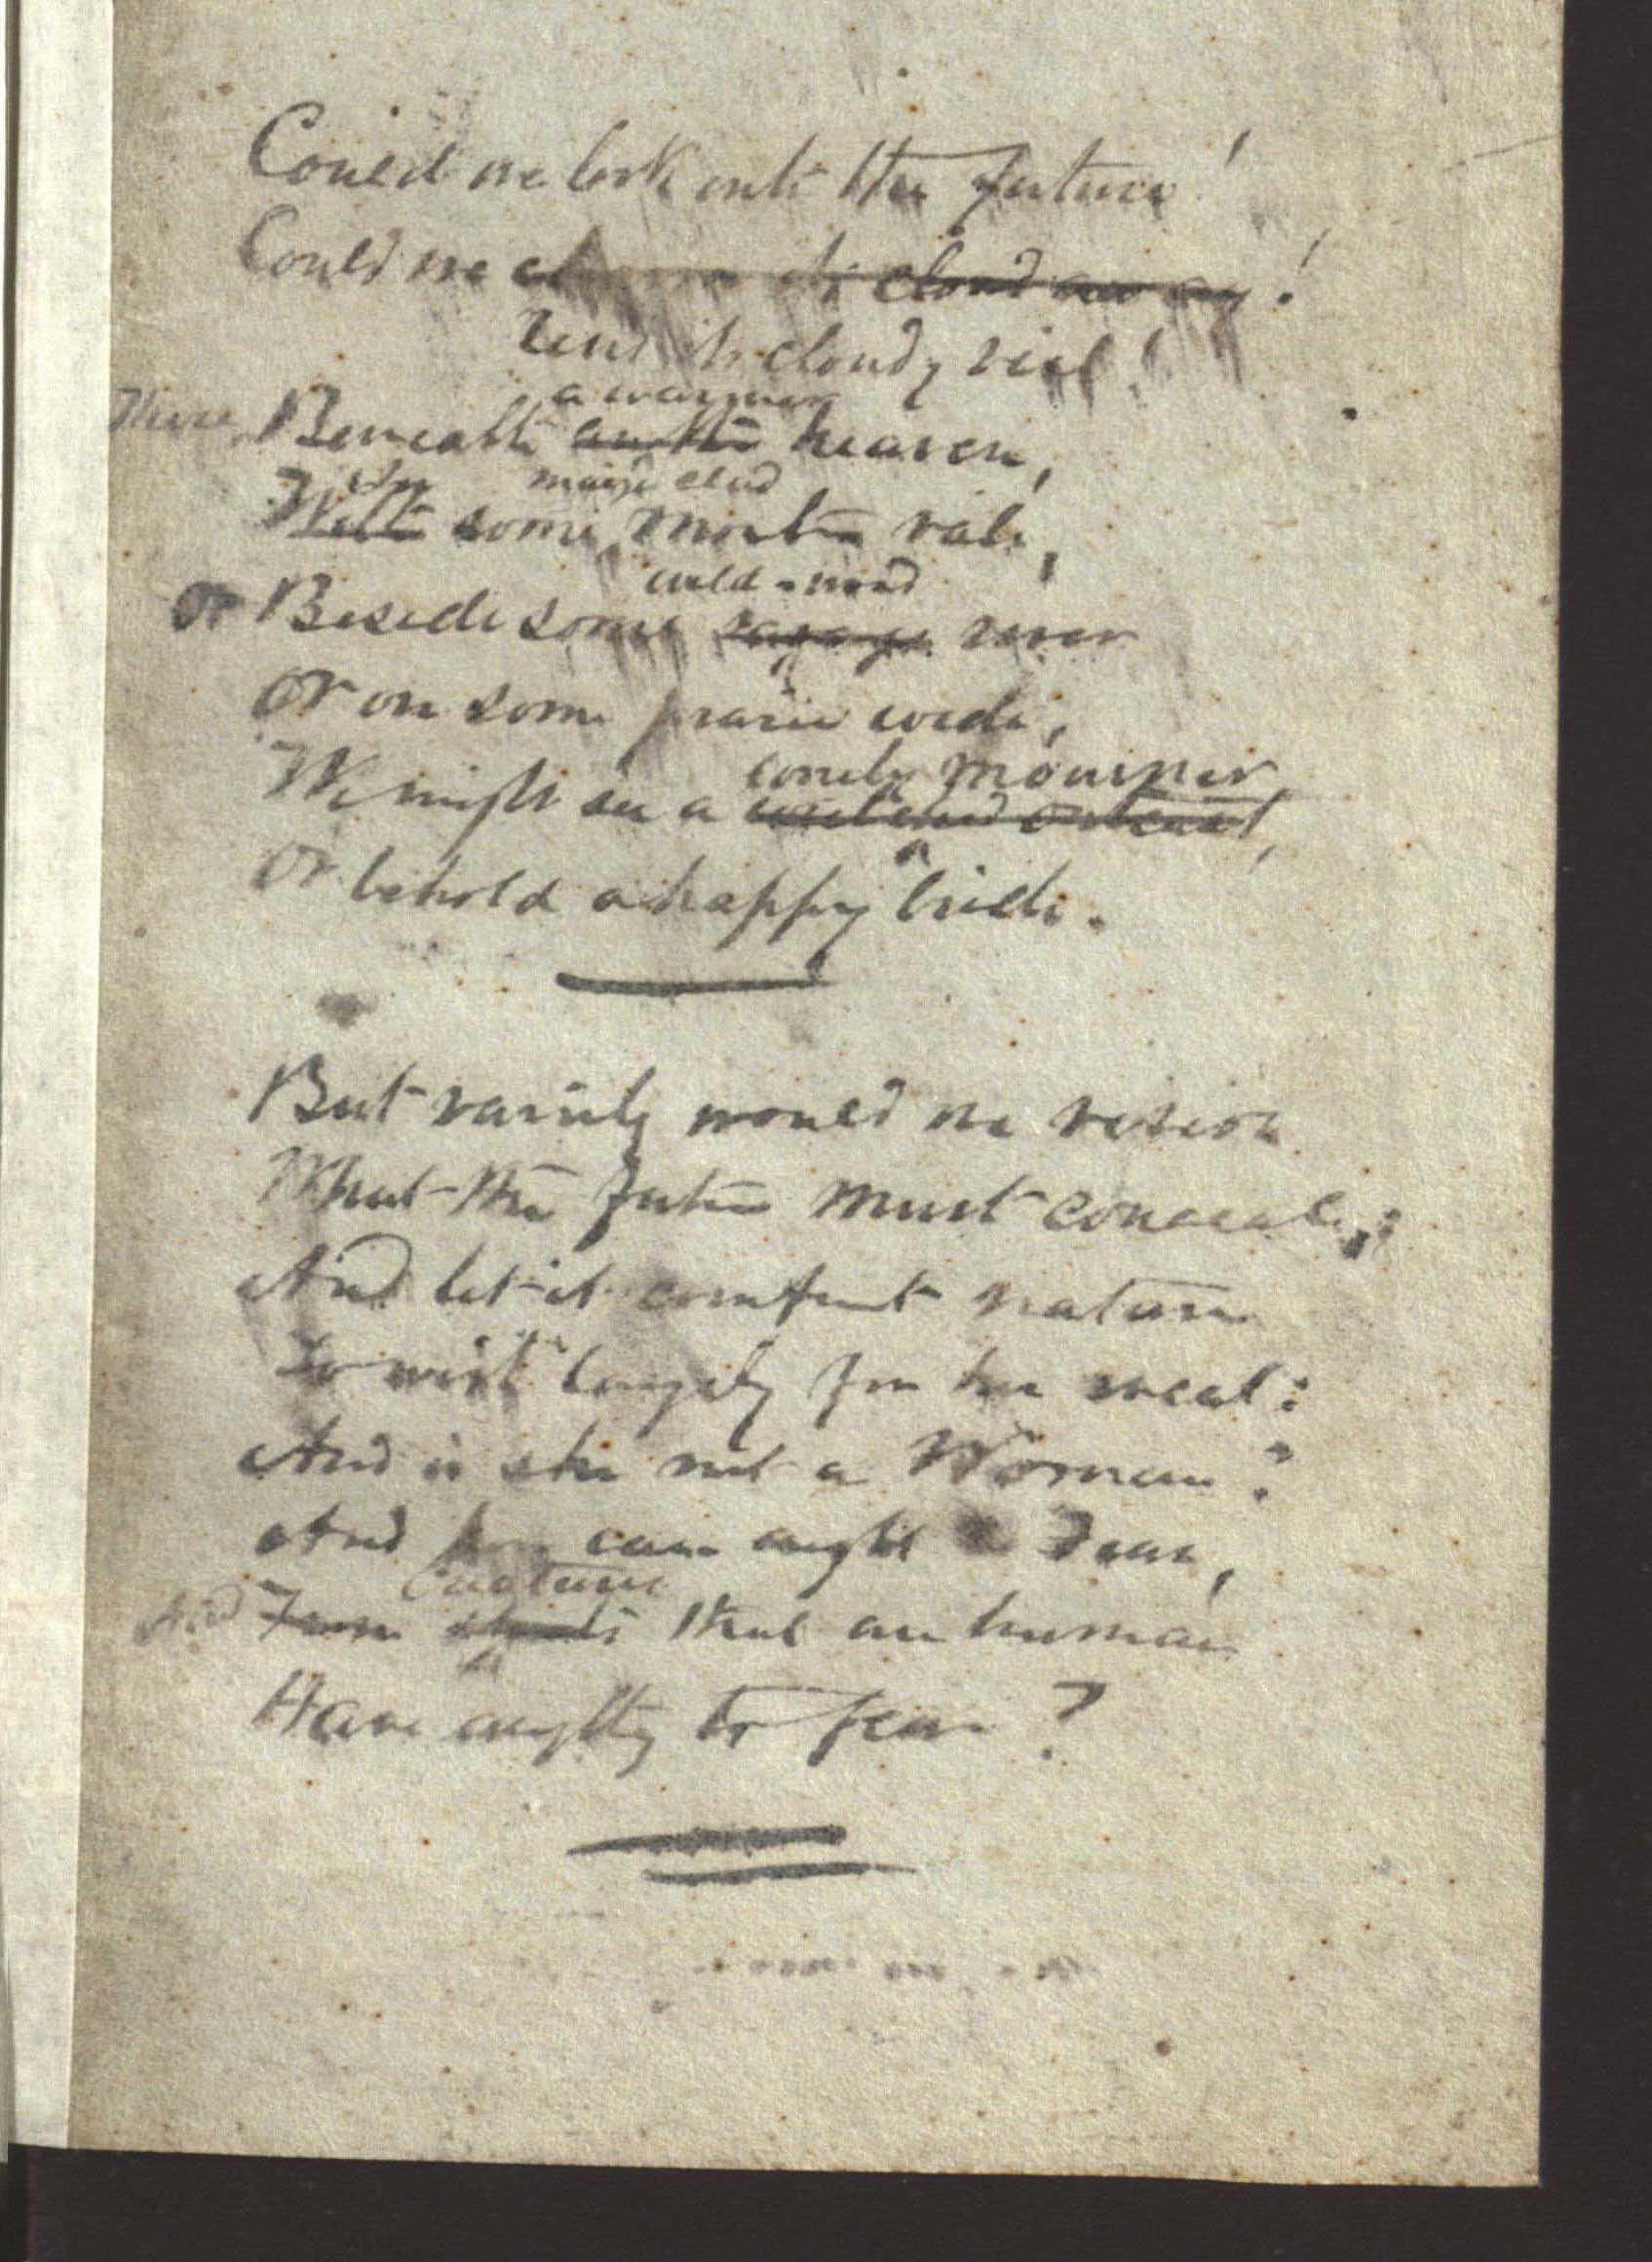 Could we look into the future!
Could we cloud away!
Rend its cloudy veil!
a warmer
There, Beneath another heaven,
In maize clad
With some vale,
wild-wood
Or Beside some savage river
Or on some prairie wide,
lonely mourner,
We might see a outcast,
Or behold a happy bride.
But vainly would we
What the Future must conceal;
And let it comfort nature
To wish largely for her weal:
And is she not a Woman?
And can aught Dear,
creature
And From that are human
Have anything to fear?